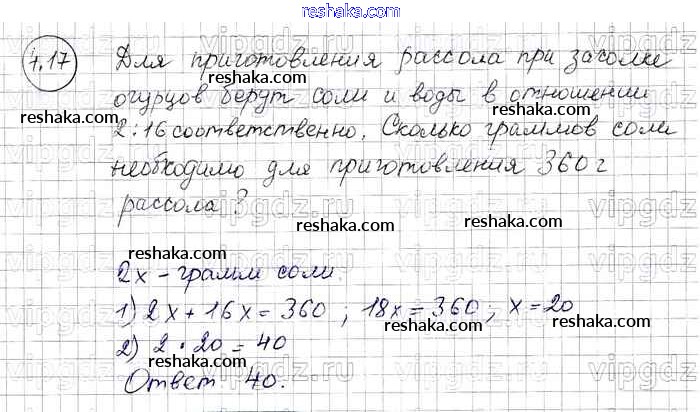 reshaka.com
4.17
Для приготовления рассола при засолке
огурцов берут соли и воды в отношении
2:16 соответственно. Сколько граммов соли
необходимо для приготовления 360 г
рассола?
2x - грамм соли.
1) 2x + 16x = 360 ; 18x = 360; x = 20
2) 2 · 20 = 40
Ответ 40.
reshaka.com
reshaka.com
reshaka.com
reshaka.com
reshaka.com
reshaka.com
reshaka.com
reshaka.com
reshaka.com
reshaka.com
reshaka.com
vipgdz.ru
vipgdz.ru
vipgdz.ru
vipgdz.ru